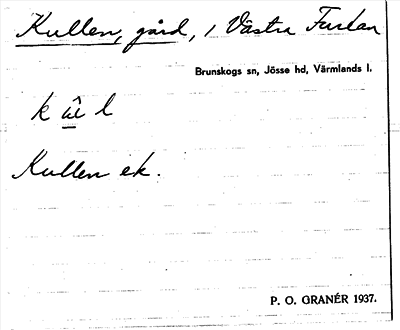 Kullen, gård, i Västra Furtan
Brunskogs sn, Jösse hd, Värmlands l.
k l
Kullen ek.
P. O. GRANÉR 1937.